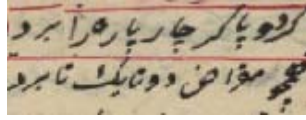 کردو پا کر چار پاره را برد
همچو مقراض دو تا یک تا برد